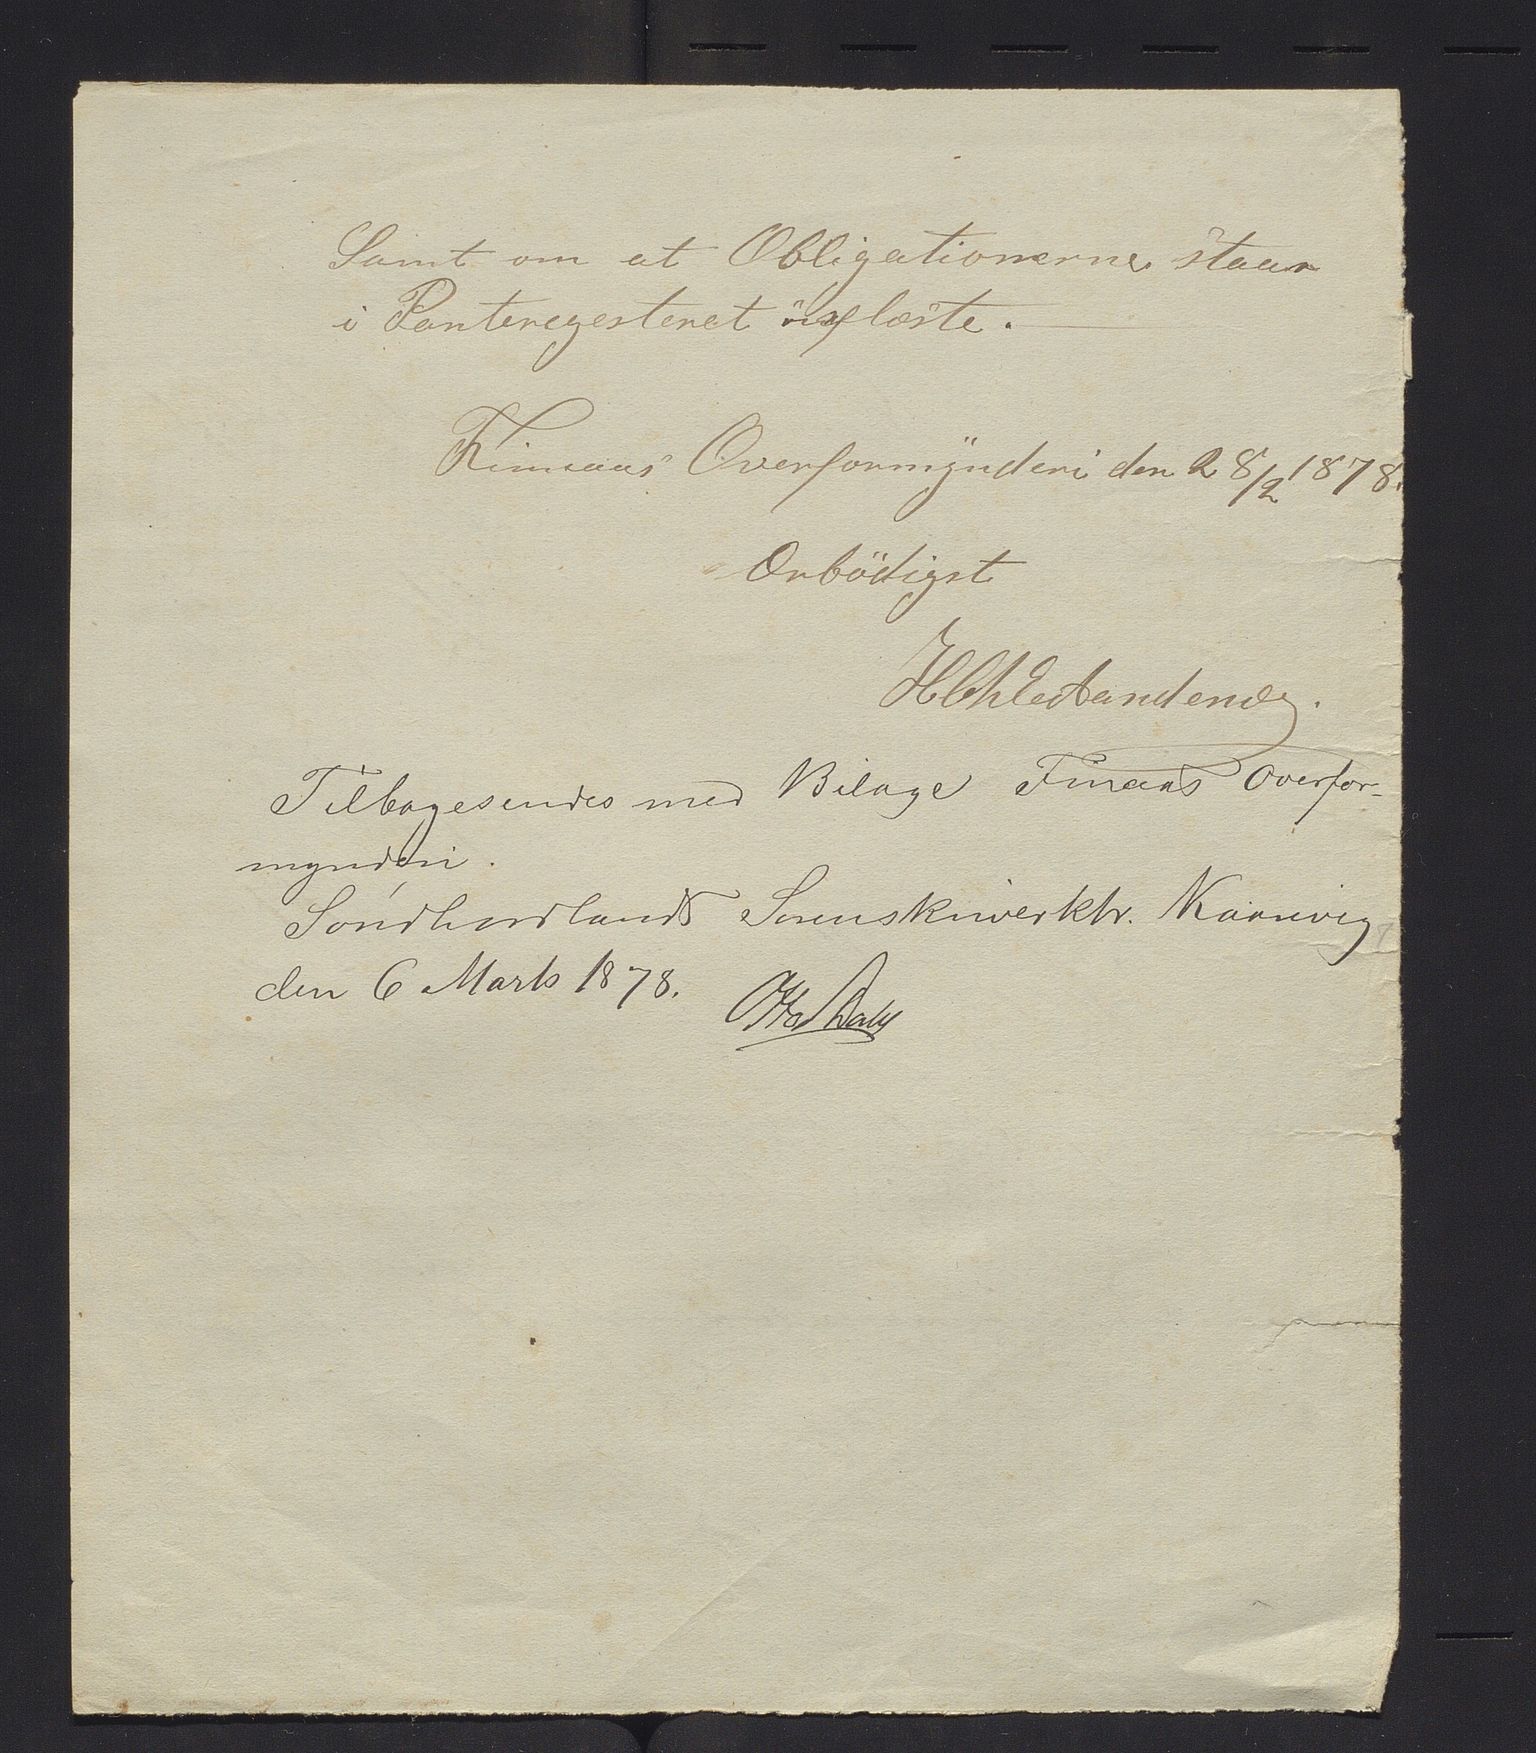 Samt om at Obligationerne staar
i Panteregesteret uaflæste.
Finaas Overformynderi den 28/2 1878.
Ærbödigst
Tilbagesendes med Bilage Finaas Overfor-
mynderi.
Söndhordlands Sorenskriverktr. Kaarevig
den 6 Marts 1878.